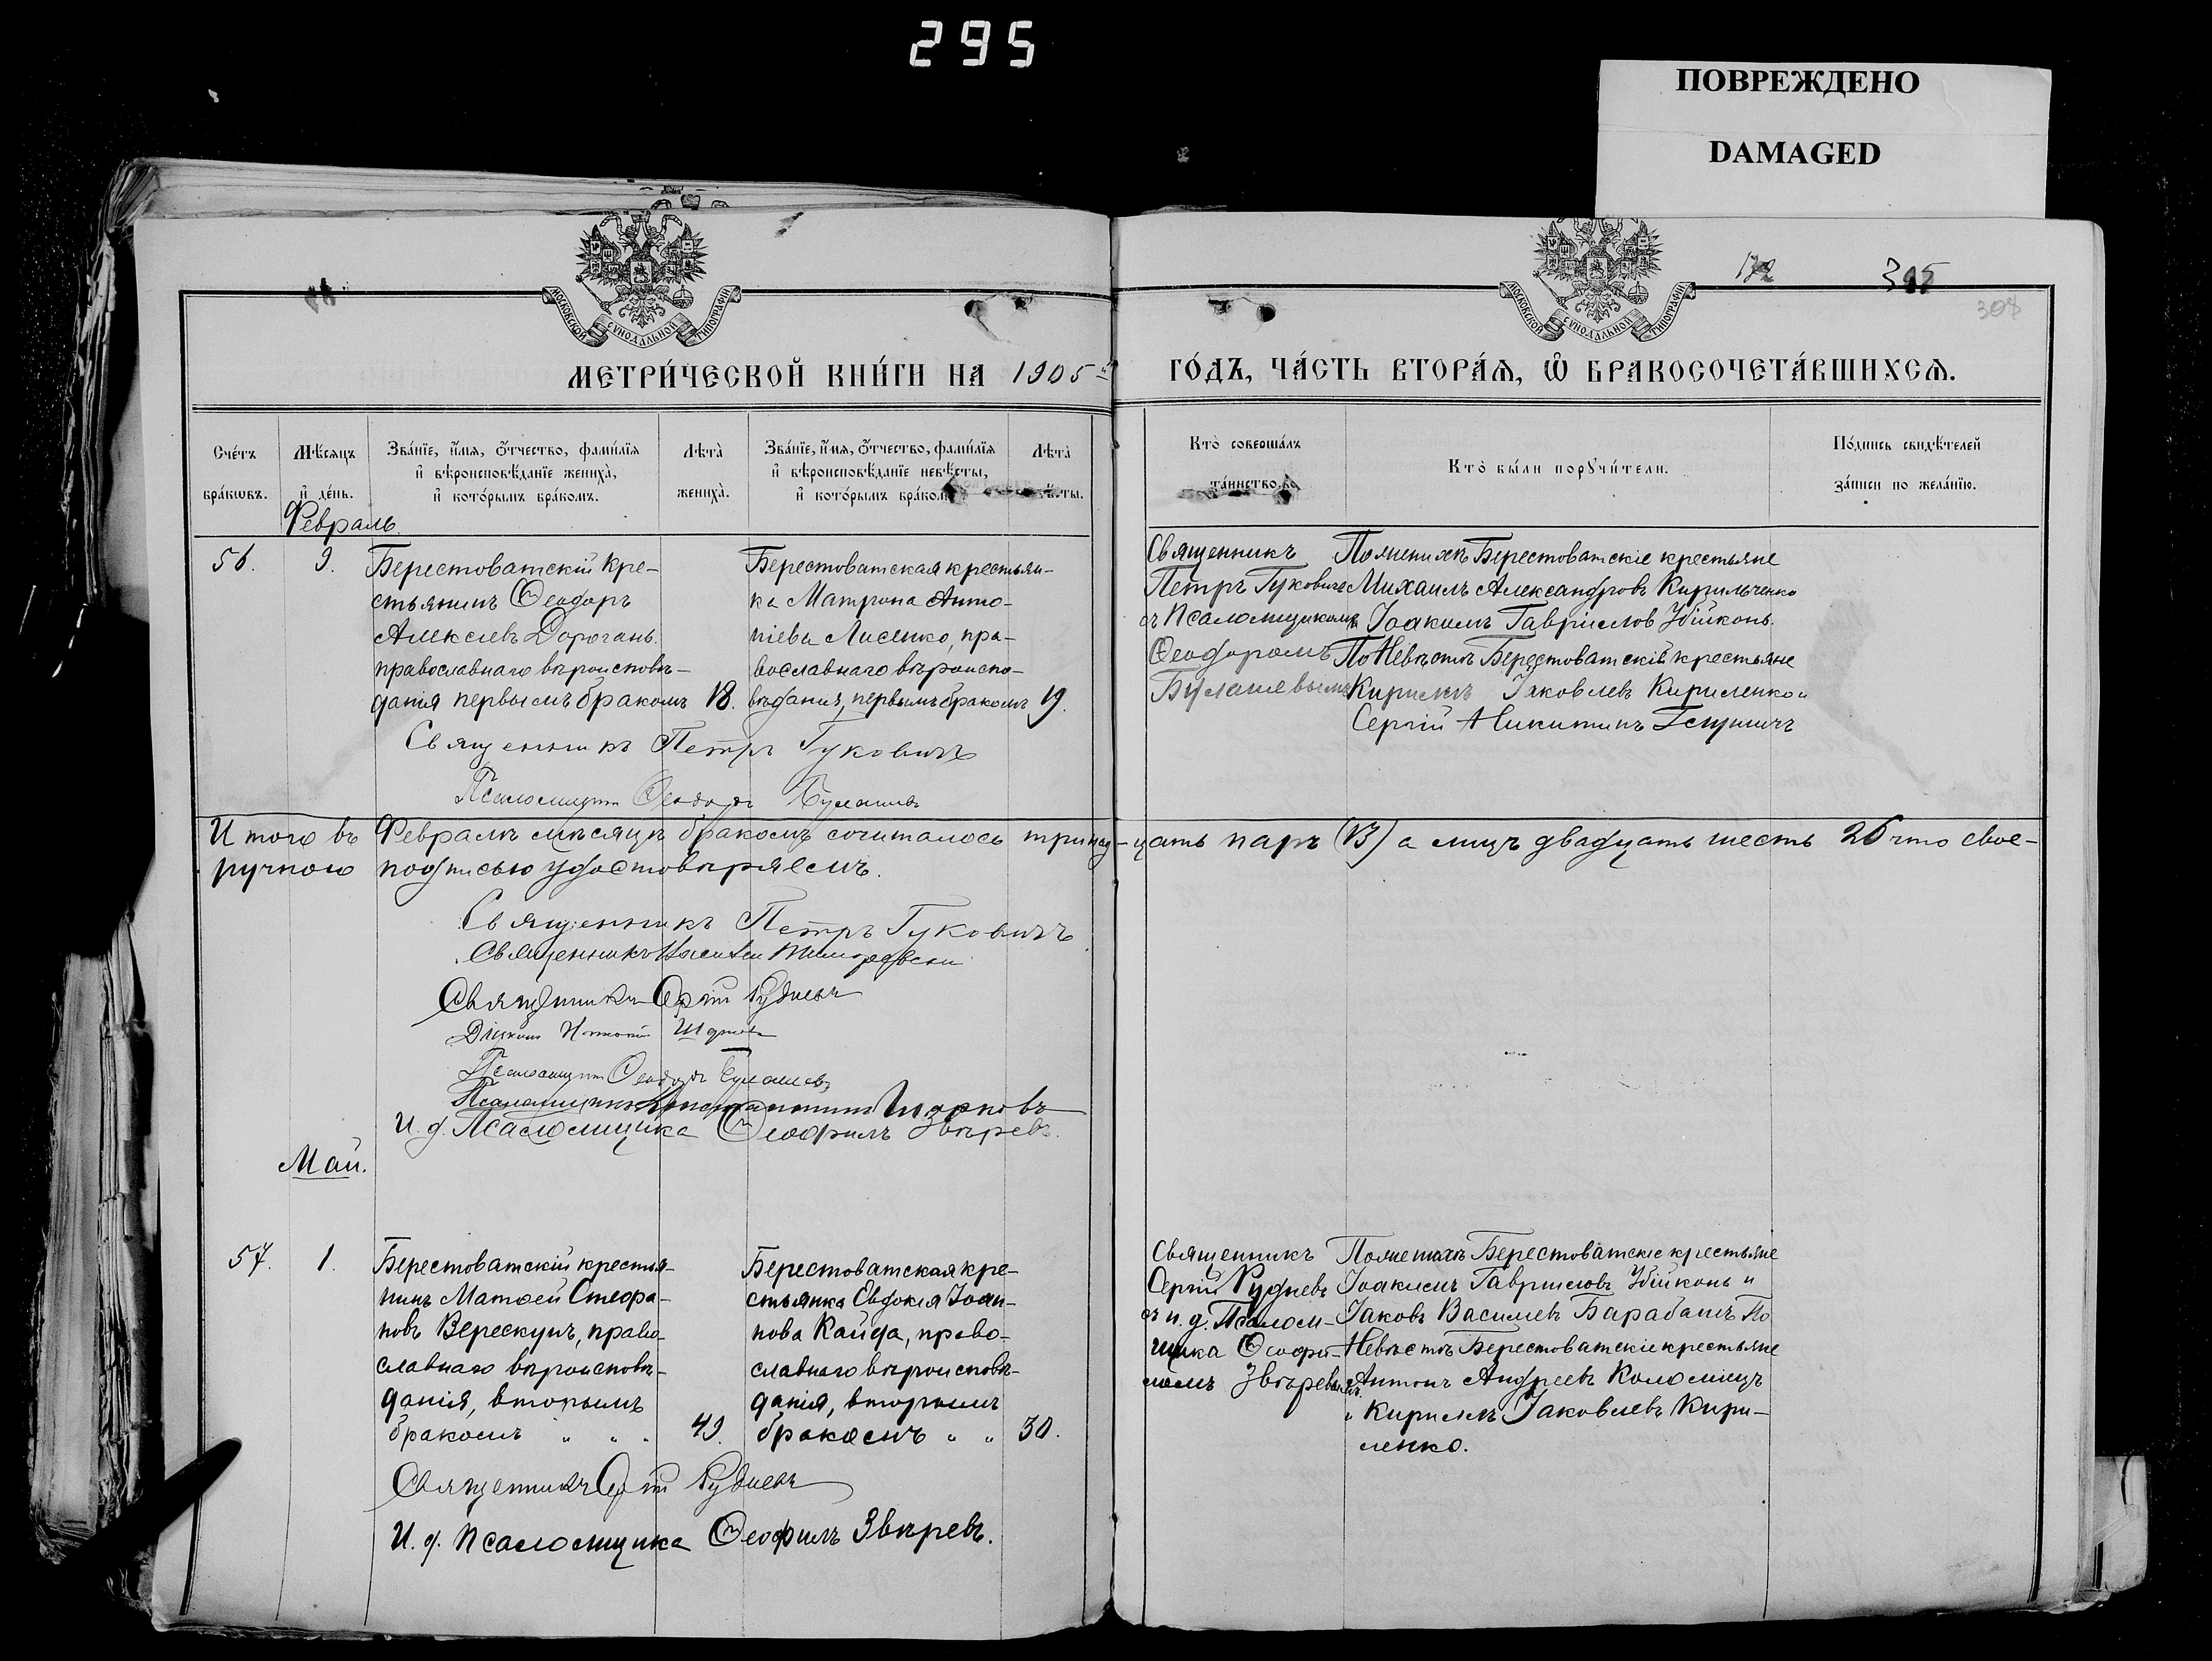 295
ПОВРЕЖДЕНО
DAMAGED
МОСКОВСКОЙ СѴНОДАЛЬНОЙ ТИПОГРАФІИ
МОСКОВСКОЙ СѴНОДАЛЬНОЙ ТИПОГРАФІИ
172
308
МЕТРИ́ЧЕСКОЙ КНИ́ГИ НА 1905
ГО́ДЪ, ЧА́СТЬ ВТОРА́Ѧ, Ѽ БРАКОСОЧЕТА́ВШИХСѦ.
Сче́тъ
бра́кѡвъ.
Мѣ́сяцъ
и҆ де́нь.
Зва́нїе, и҆́мя, ѻ҆́тчество, фами́лїя
и҆ вѣроисповѣ́данїе жениха̀,
и҆ кото́рымъ бра́комъ.
Лѣта̀
жениха̀.
Зва́нїе, и҆́мя, ѻ҆́тчество, фами́лїя
и҆ вѣроисповѣ́данїе невѣ́сты,
и҆ кото́рымъ бра́ком
Лѣта̀
Кто̀ соверша́лъ
та́инство
Кто̀ бы́ли порꙋчи́тели.
По́дпись свидѣ́телей
за́писи по жела́нїю.
Февраль
56.
9.
Берестоватскій кре-
стьянинъ Ѳеодоръ
Алексѣевъ Дорогань
православнаго вѣроисповѣ-
данія первымъ бракомъ
18.
Берестоватская крестьян-
ка Матрона Анто-
ніева Лисенко, пра-
вославнаго вѣроиспо-
вѣданія, первымъ бракомъ
19.
Священникъ
Петръ Гуковичъ
съ Псаломщикомъ
Ѳеодоромъ
Булашевымъ
По женихѣ Берестоватскіе крестьяне
Михаилъ Александровъ Кирильченко
Іоакимъ Гавріиловъ Убійконь.
По Невѣстѣ Берестоватскіе крестьяне
Кириллъ Іаковлевъ Кириленко и
Сергій Никитинъ
Священникъ Петръ Гуковичъ
Псаломщикъ Ѳеодоръ Булашевъ
Итого въ Февралѣ мѣсяцѣ бракомъ сочиталось тринад-цать паръ (13) а лицъ двадцать шесть 26 что свое-
ручною подписью удостовѣряемъ.
Священникъ Петръ Гуковичъ
Священникъ
Священникъ Сергій Рудневъ
Псаломщикъ Ѳеодоръ Булашевъ
Псаломщикъ Константинъ
И. д. Псаломщика Ѳеофилъ Звѣревъ.
Май.
57.
1.
Берестоватскій крестья-
нинъ Матѳей Стефа-
новъ Верескунъ, право-
славнаго вѣроисповѣ-
данія, вторымъ
бракомъ " " "
49.
Берестоватская кре-
стьянка Евдокія Іоан-
нова Кайда, право-
славнаго вѣроисповѣ-
данія, вторымъ
бракомъ " "
30.
Священникъ
Сергій Рудневъ
съ и. д. Псалом-
щика Ѳеофи-
ломъ Звѣревымъ.
По женихѣ Берестоватскіе крестьяне
Іоакимъ Гавриловъ Убійконь и
Іаковъ Василіевъ Барабашъ По
Невѣстѣ Берестоватскіе крестьяне
Антонъ Андреевъ Коломіецъ
и Кириллъ Іаковлевъ Кири-
ленко.
Священникъ Сергій Рудневъ
И. д. Псаломщика Ѳеофилъ Звѣревъ.